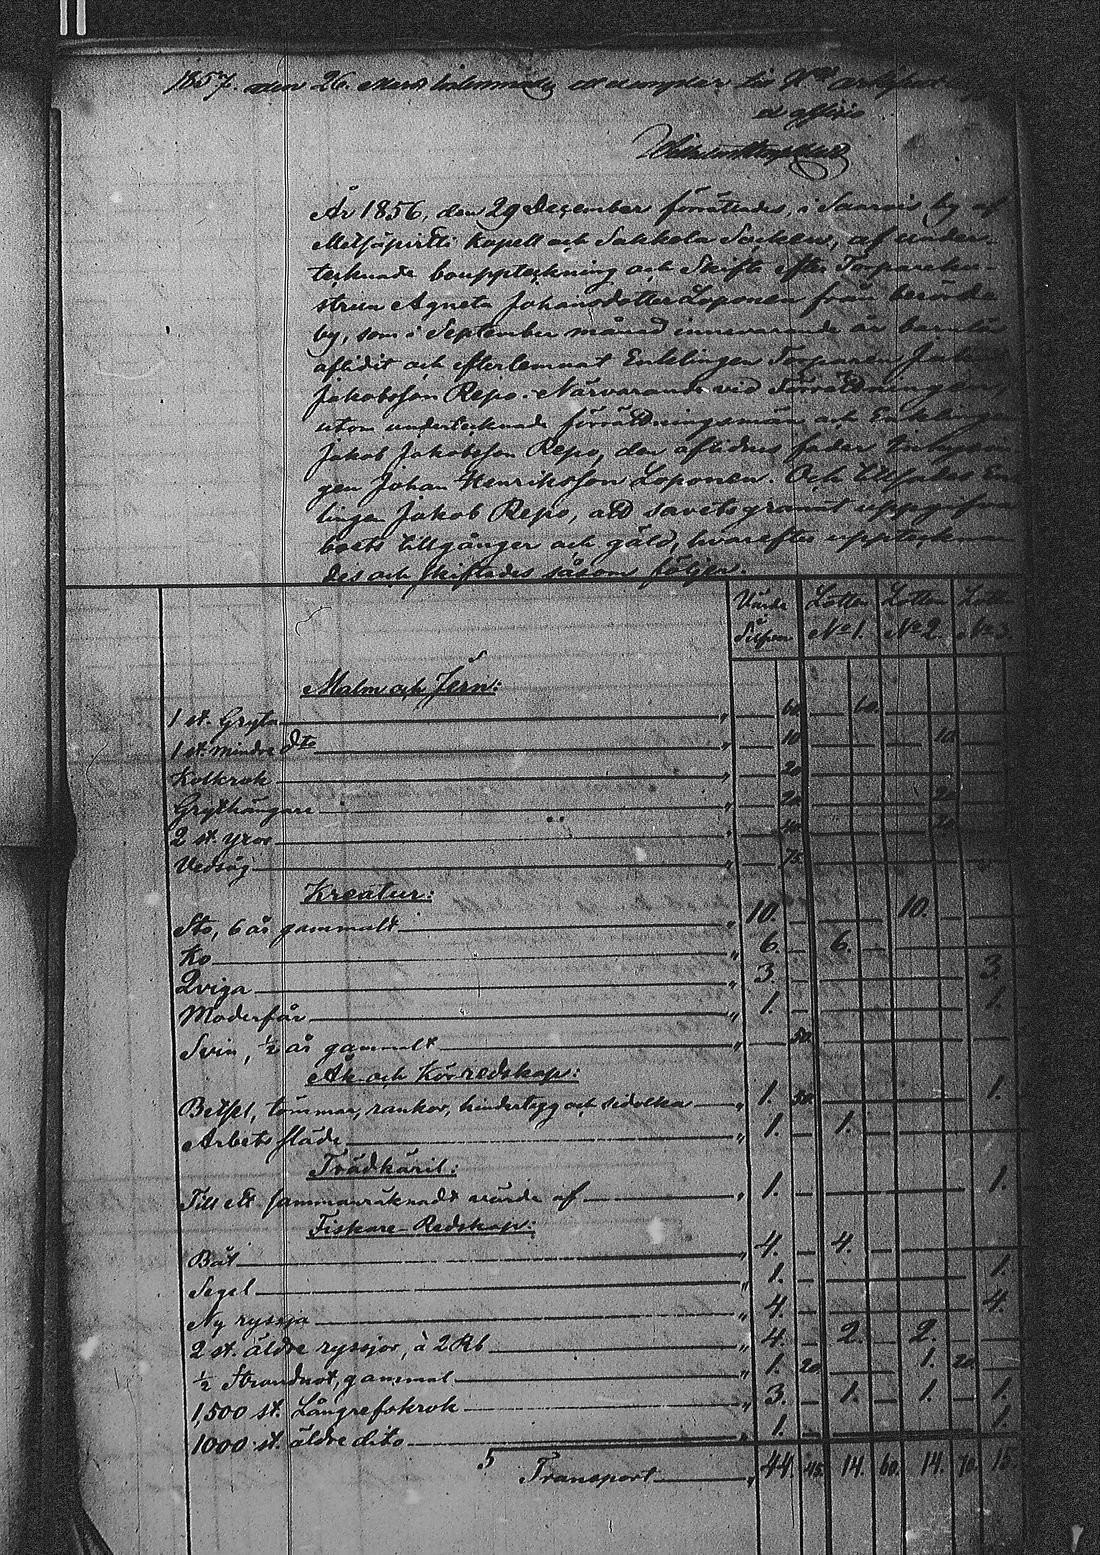 1857. den 26. Mars inlemnades ett exemplar till
ex officio
År 1856, den 29 December förrättades, i Saarois by af
Metsäpirtti Kapell och Sakkola Socken, af under-
tecknade bouppteckning och Skifte efter Torparehu-
strun Agneta Johansdotter Loponen från berörde
by, som i September månad innevarande år barnlös
aflidit och efterlemnat Enkelingen Torparen Jakob
Jakobsson Repo. Närvarande vid Förrättningen
utom undertecknade förrättningsmän och Enklingen
Jakob Jakobsson Repo, den aflidnes fader Inhysin-
gen Johan Henriksson Loponen. Och tillsades En-
lingen Jakob Repo, att samvetsgrannt uppgifva
boets tillgångar och gäld, hvarefter uppteckna-
des och skiftades såsom följer.
Värde Lotten Lotten Lotten
Silfver No 1. No 2. No 3.
Malm och Jern:
1 st. Gryta " 60. 60.
1 st. mindre dto " 10 10.
Kolkrok " 20
Grythängare " 20. 20
2 st. yxor "
Vedsåg " 75.
Kreatur:
Sto, 6 år gammalt " 10. 10.
Ko " 6. 6.
Qviga " 3. 3.
Moderfår " 1. 1.
Svin, ½ år gammalt " 50.
Åk- och Körredskap:
Betsel, tömmar, rankor, hindertyg och sedolka " 1. 50. 1.
Arbetssläde " 1. 1.
Trädkäril:
Till ett sammanräknadt värde af " 1. 1.
Fiskare-Redskap:
Båt " 4. 4.
Segel " 1. 1.
Ny ryssja " 4. 4.
2 st. äldre ryssjor, à 2 Rb " 4. 2. 2.
½ Strandnot, gammal " 1. 20. 1. 20.
1,500 st. Långrefskrok " 3. 1. 1. 1.
1000 st. äldre dito " 1. 1.
Transport " 44. 45. 14. 60. 14. 70. 15.